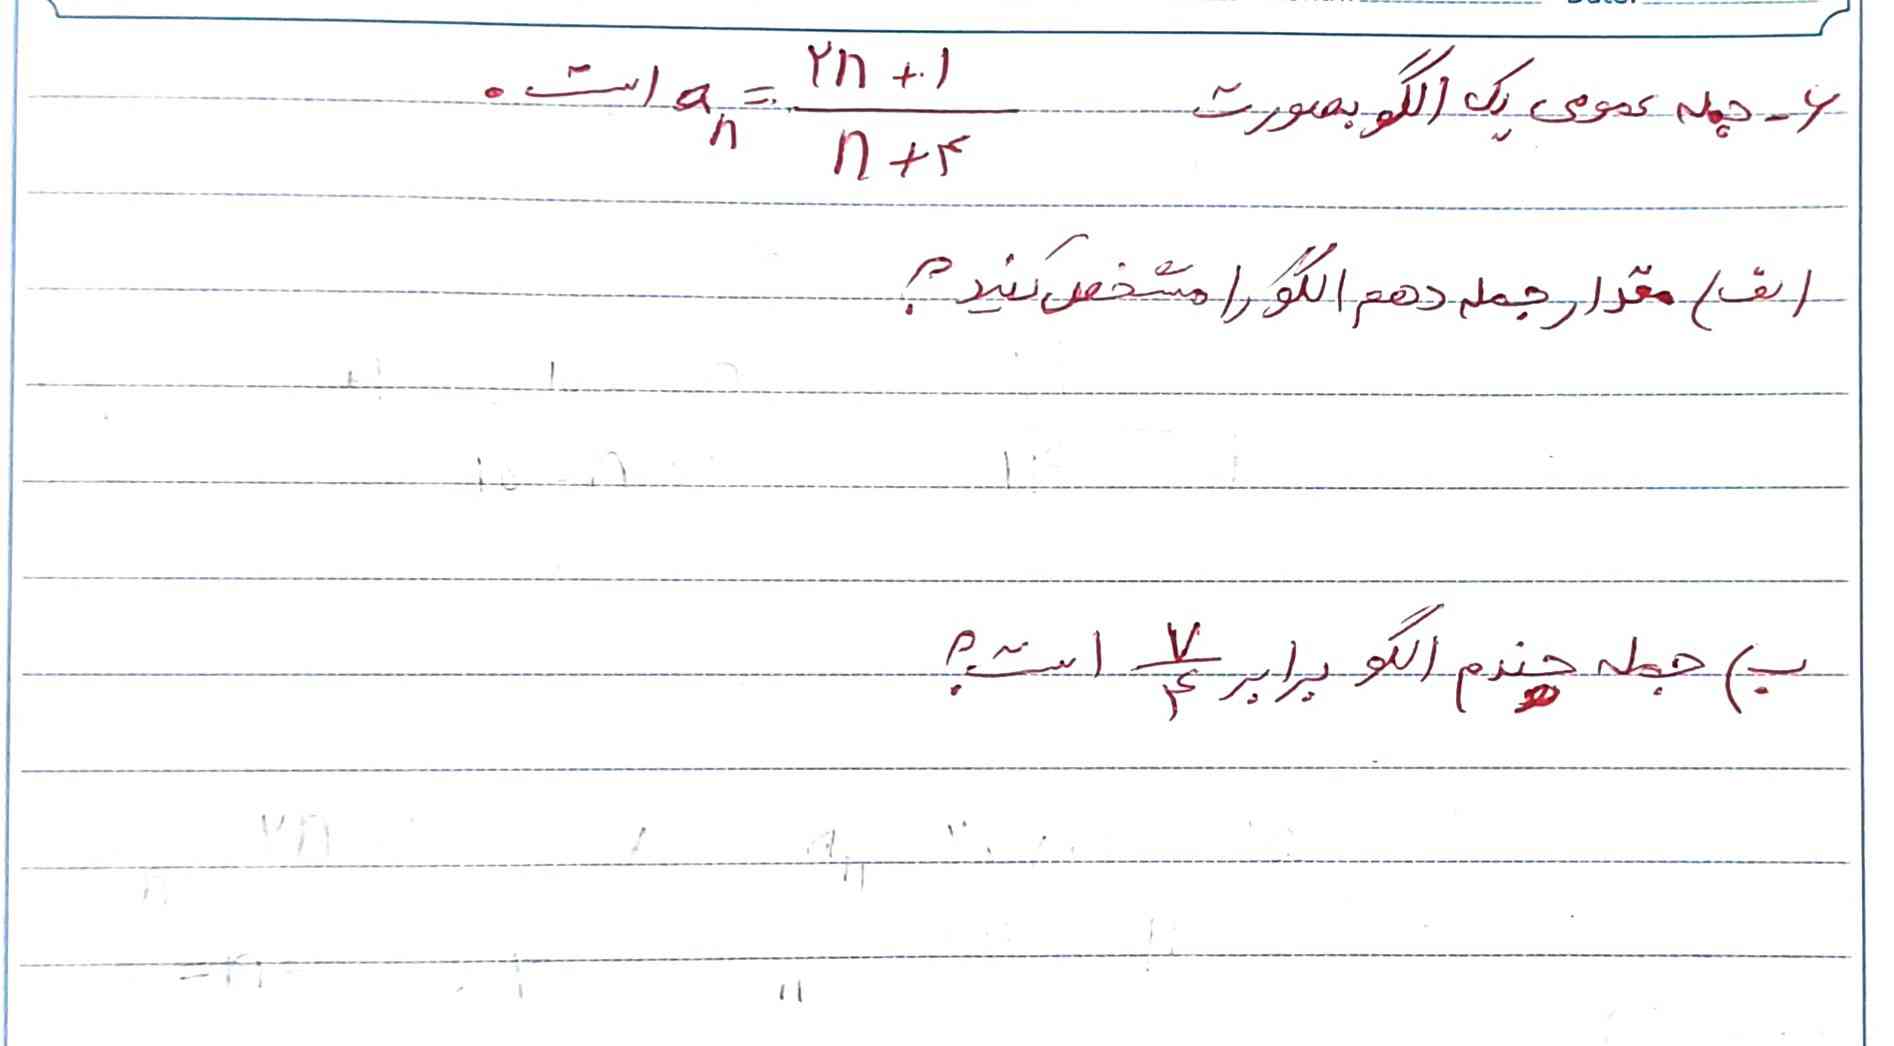 ۶- جمله عمومی یک الگو بصورت a_n = (۲n + ۱)/(n + ۴) است.
الف) مقدار جمله دهم الگو را مشخص کنید؟
ب) جمله چندم الگو برابر ۷/۴ است؟